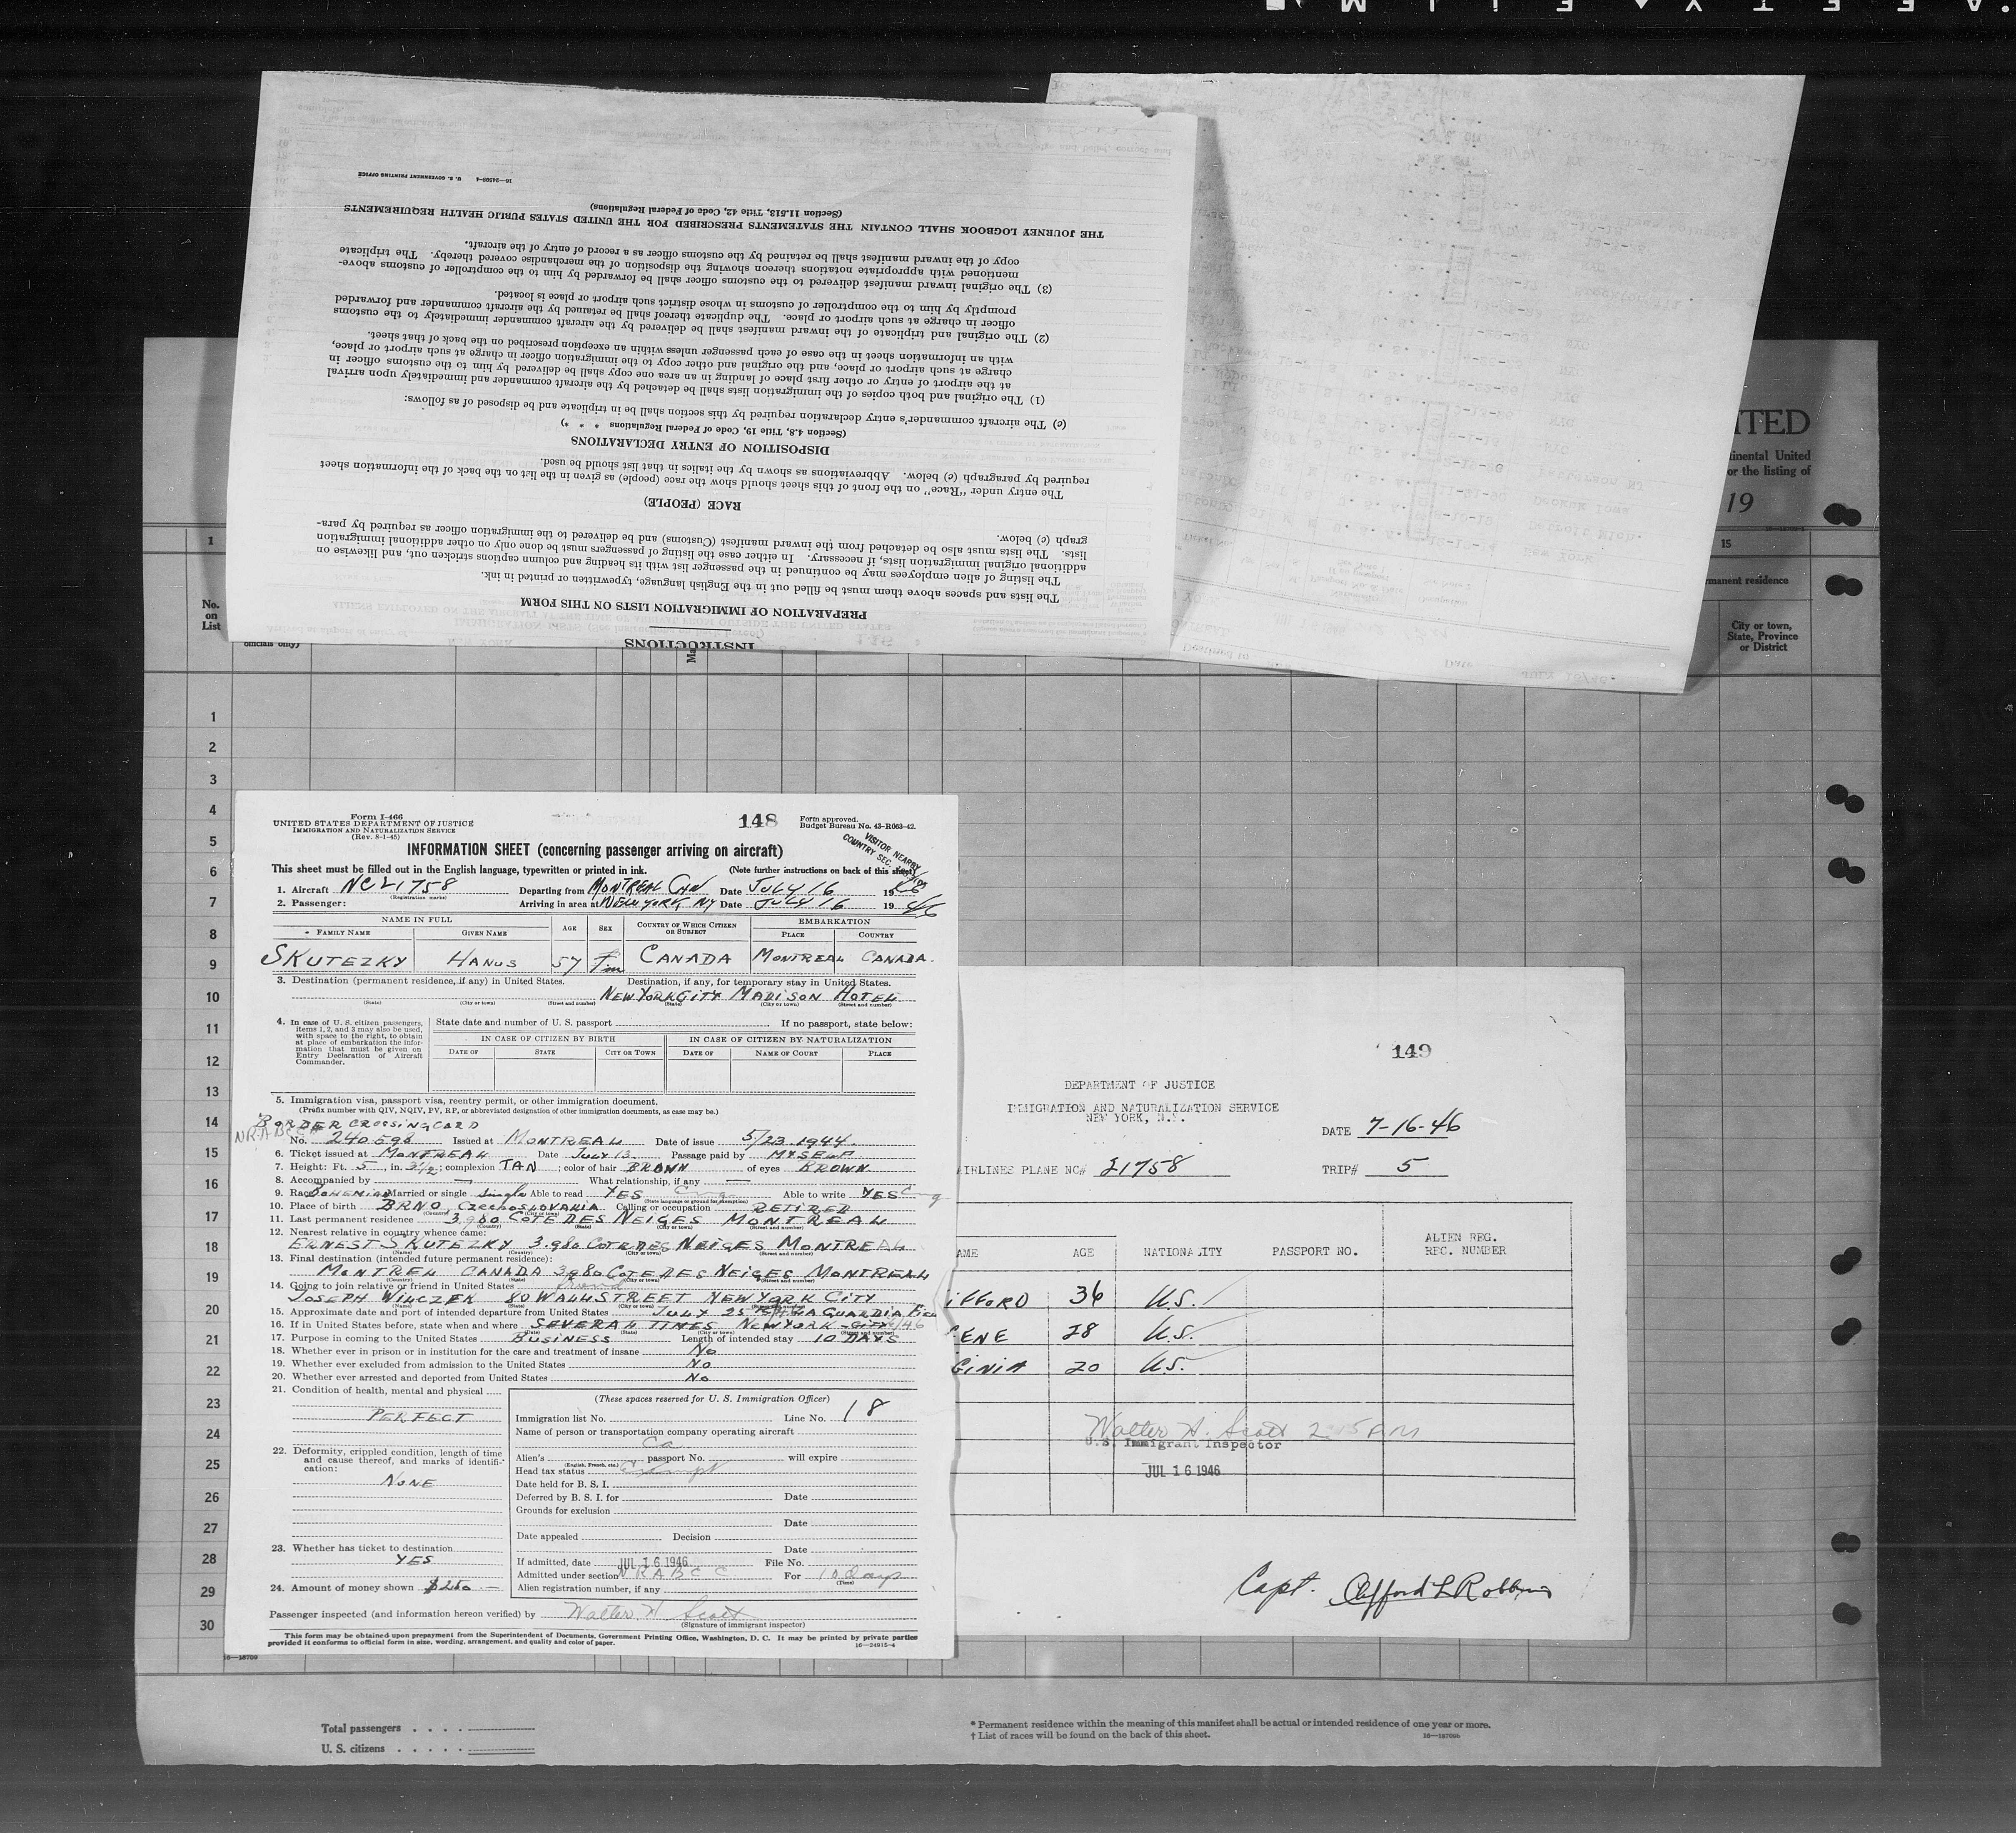 INSTRUCTIONS
PREPARATION OF IMMIGRATION LISTS ON THIS FORM
The lists and spaces above them must be filled out in the English language, typewritten or printed in ink.
The listing of alien employees may be continued in the passenger list with its heading and column captions stricken out, and likewise on
additional original immigration lists, if necessary. In either case the listing of passengers must be done only on other additional immigration
lists. The lists must also be detached from the inward manifest (Customs) and be delivered to the immigration officer as required by para-
graph (c) below.
RACE (PEOPLE)
The entry under "Race" on the front of this sheet should show the race (people) as given in the list on the back of the information sheet
required by paragraph (c) below. Abbreviations as shown by the italics in that list should be used.
DISPOSITION OF ENTRY DECLARATIONS
(Section 4.8, Title 19, Code of Federal Regulations * * *)
(c) The aircraft commander's entry declaration required by this section shall be in triplicate and be disposed of as follows:
(1) The original and both copies of the immigration lists shall be detached by the aircraft commander and immediately upon arrival
at the airport of entry or other first place of landing in an area one copy shall be delivered by him to the customs officer in
charge at such airport or place, and the original and other copy to the immigration officer in charge at such airport or place,
with an information sheet in the case of each passenger unless within an exception prescribed on the back of that sheet.
(2) The original and triplicate of the inward manifest shall be delivered by the aircraft commander immediately to the customs
officer in charge at such airport or place. The duplicate thereof shall be retained by the aircraft commander and forwarded
promptly by him to the comptroller of customs in whose district such airport or place is located.
(3) The original inward manifest delivered to the customs officer shall be forwarded by him to the comptroller of customs above-
mentioned with appropriate notations thereon showing the disposition of the merchandise covered thereby. The triplicate
copy of the inward manifest shall be retained by the customs officer as a record of entry of the aircraft.
THE JOURNEY LOGBOOK SHALL CONTAIN THE STATEMENTS PRESCRIBED FOR THE UNITED STATES PUBLIC HEALTH REQUIREMENTS
(Section 11.513, Title 42, Code of Federal Regulations)
16—24598-4 U. S. GOVERNMENT PRINTING OFFICE
ITED
tinental United
or the listing of
19
1
15
manent residence
No.
on
List
officials only)
City or town,
State, Province
or District
1
2
3
4
5
6
7
8
9
10
11
12
13
14
15
16
17
18
19
20
21
22
23
24
25
26
27
28
29
30
Form I-466
UNITED STATES DEPARTMENT OF JUSTICE
IMMIGRATION AND NATURALIZATION SERVICE
(Rev. 8-1-45)
148
Form approved.
Budget Bureau No. 43-R063-42.
VISITOR NEARBY
COUNTRY SEC.
INFORMATION SHEET (concerning passenger arriving on aircraft)
This sheet must be filled out in the English language, typewritten or printed in ink. (Note further instructions on back of this sheet)
1. Aircraft NC 21758 Departing from MONTREAL CAN Date JULY 16 1946
(Registration marks)
2. Passenger: Arriving in area at NEW YORK, NY Date JULY 16 1946
NAME IN FULL AGE SEX COUNTRY OF WHICH CITIZEN OR SUBJECT EMBARKATION
FAMILY NAME GIVEN NAME PLACE COUNTRY
SKUTEZKY HANUS 57 m CANADA MONTREAL CANADA.
3. Destination (permanent residence, if any) in United States. Destination, if any, for temporary stay in United States.
NEW YORK CITY MADISON HOTEL
(State) (City or town) (Street and number) (State) (City or town) (Street and number)
4. In case of U. S. citizen passengers, items 1, 2, and 3 may also be used, with space to the right, to obtain at place of embarkation the information that must be given on Entry Declaration of Aircraft Commander.
State date and number of U. S. passport If no passport, state below:
IN CASE OF CITIZEN BY BIRTH IN CASE OF CITIZEN BY NATURALIZATION
DATE OF STATE CITY OR TOWN DATE OF NAME OF COURT PLACE
5. Immigration visa, passport visa, reentry permit, or other immigration document.
(Prefix number with QIV, NQIV, PV, RP, or abbreviated designation of other immigration documents, as case may be.)
BORDER CROSSING CARD
No. 240598 Issued at MONTREAL Date of issue 5/23.1944.
6. Ticket issued at MONTREAL Date JULY 13 Passage paid by MYSELF
7. Height: Ft. 5, in. 3½; complexion TAN; color of hair BROWN of eyes BROWN
8. Accompanied by — What relationship, if any —
9. Race BOHEMIAN Married or single single Able to read YES Able to write YES
(State language or ground for exemption)
10. Place of birth BRNO, CzechoSLOVAKIA Calling or occupation RETIRED
11. Last permanent residence 3.980 COTE DES NEIGES MONTREAL
12. Nearest relative in country whence came:
ERNEST SKUTEZKY 3.980 COTE DES NEIGES MONTREAL
13. Final destination (intended future permanent residence):
MONTREL CANADA 3980 COTE DES NEIGES MONTREAL
14. Going to join relative or friend in United States friend
JOSEPH WILCZEK 80 WALLSTREET NEW YORK CITY
15. Approximate date and port of intended departure from United States JULY 25 LA GUARDIA
16. If in United States before, state when and where SEVERAL TIMES NEW YORK-CITY
17. Purpose in coming to the United States BUSINESS Length of intended stay 10 DAYS
18. Whether ever in prison or in institution for the care and treatment of insane No
19. Whether ever excluded from admission to the United States No
20. Whether ever arrested and deported from United States No
21. Condition of health, mental and physical
PERFECT
22. Deformity, crippled condition, length of time and cause thereof, and marks of identification:
NONE
23. Whether has ticket to destination
YES
24. Amount of money shown $250 —
(These spaces reserved for U. S. Immigration Officer)
Immigration list No. Line No. 18
Name of person or transportation company operating aircraft
Ca
Alien's passport No. will expire
(English, French, etc.)
Head tax status Exempt
Date held for B. S. I.
Deferred by B. S. I. for Date
Grounds for exclusion
Date
Date appealed Decision
Date
If admitted, date JUL 16 1946 File No.
Admitted under section NRABCC For 10 days
(Time)
Alien registration number, if any
Passenger inspected (and information hereon verified) by Walter H. Scott
(Signature of immigrant inspector)
This form may be obtained upon prepayment from the Superintendent of Documents, Government Printing Office, Washington, D. C. It may be printed by private parties
provided it conforms to official form in size, wording, arrangement, and quality and color of paper. 16—24915-4
149
DEPARTMENT OF JUSTICE
IMMIGRATION AND NATURALIZATION SERVICE
NEW YORK, N.Y.
DATE 7-16-46
AIRLINES PLANE NC# 21758 TRIP# 5
AME AGE NATIONALITY PASSPORT NO. ALIEN REG. REC. NUMBER
iFFORD 36 U.S.
ENE 28 U.S.
GINIA 20 U.S.
Walter H. Scott 2:45 PM
U.S. Immigrant Inspector
JUL 16 1946
Capt. Clifford L Robbins
16—18709
Total passengers . . . .
U. S. citizens . . . . .
* Permanent residence within the meaning of this manifest shall be actual or intended residence of one year or more.
† List of races will be found on the back of this sheet.